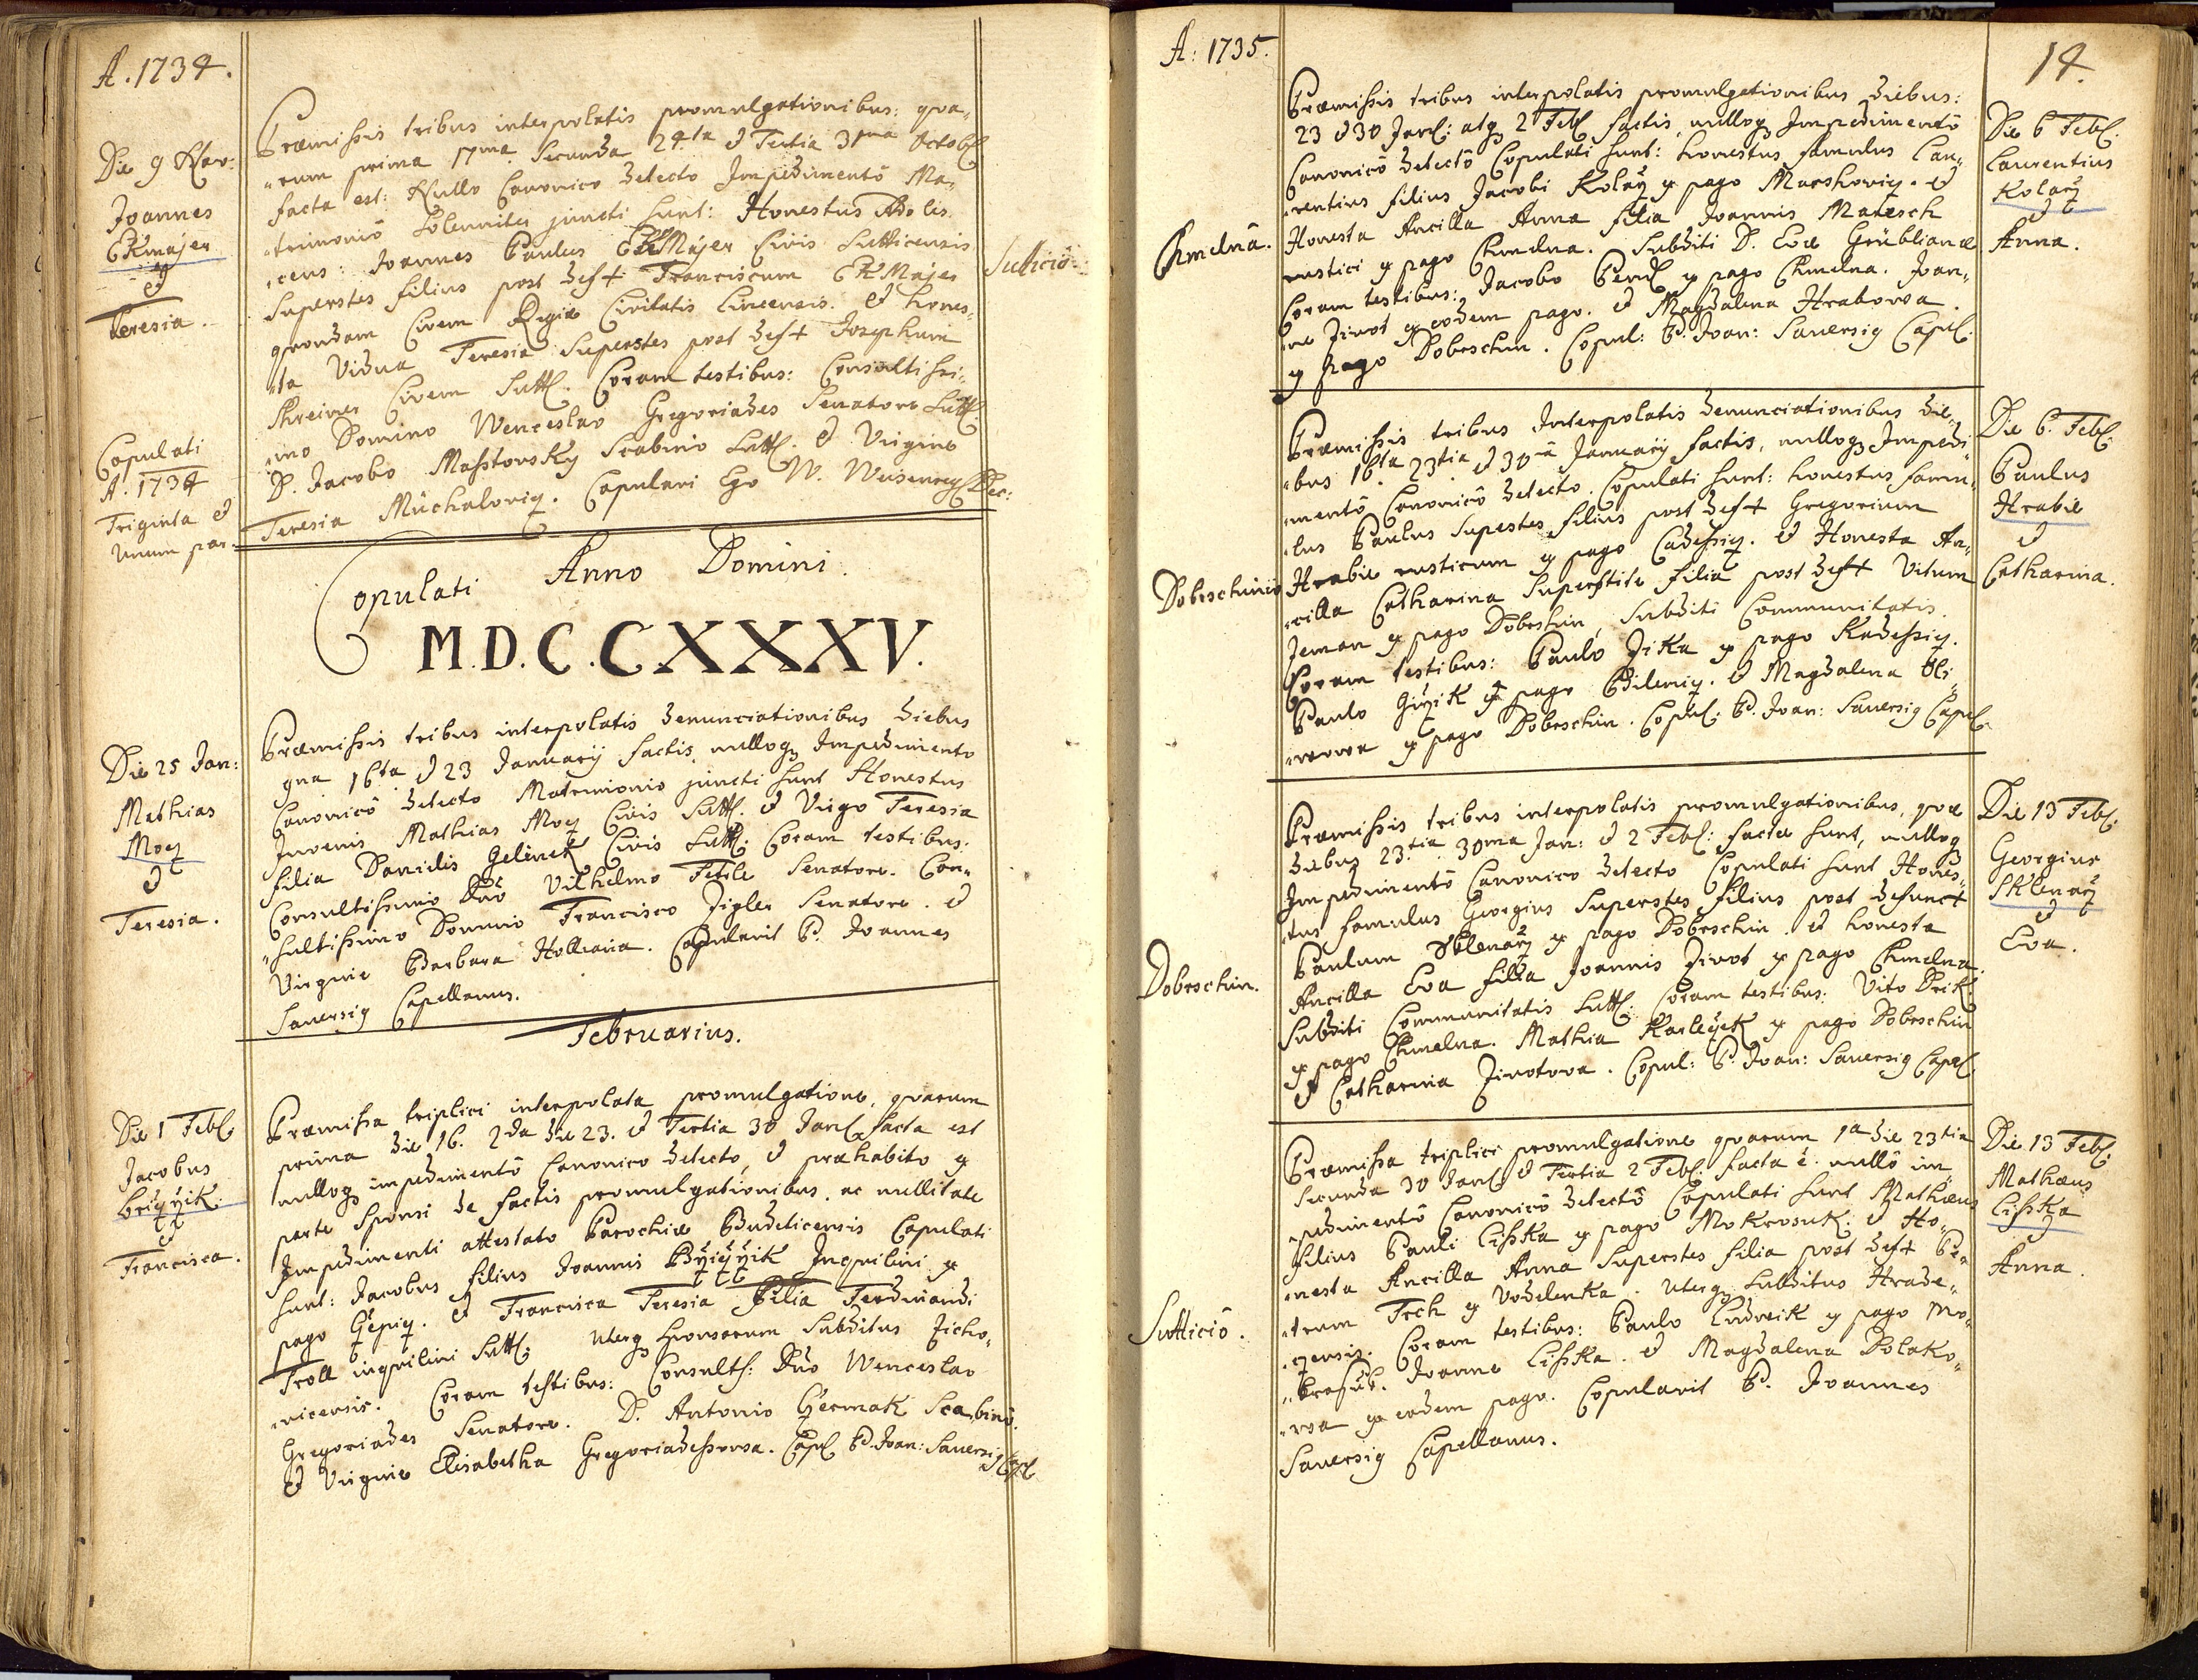 A. 1734.
Die 9 Nov:
Joannes
Ekmajer
et
Teresia.
Præmissis tribus interpolatis promulgationibus: qva-
-rum prima 17ma. Secunda 24.ta et Tertia 31ma Octobr
facta est: Nullo Canonico detecto Impedimentô Ma-
-trimoniô Solenniter juncti sunt: Honestus Adoles-
-cens: Joannes Paulus EkMajer Civis Sutticensis
Superstes filius post def+ Franciscum EkMajer
qvondam Civem Regiæ Civitatis Lincensis. et hones-
-ta Vidua Teresia Superstes post def+ Josephum
Shreiner Civem Sutt. Coram testibus: Consultissi-
-mo Domino Wenceslao Gregoriades Senatore Sutt.
D. Jacobo Masstovsky Scabino Sutt. et Virgine
Teresia Muchaloviq. Copulavi Ego W. Weiseney Dec:
Sutticiô
Copulati
A. 1734
Triginta et
Unum par.
Copulati Anno Domini.
M.D.C.CXXXV.
Die 25 Jan:
Mathias
Moq
et
Teresia.
Præmissis tribus interpolatis denunciationibus diebus
qua 16ta et 23 January factis, nulloq Impedimento
Canonicô detecto Matrimonio juncti sunt Honestus
Juvenis Mathias Moq Civis Sutt. et Virgo Teresia
filia Danielis Gelinek Civis Sutt. Coram testibus:
Consultissimo Dno Vilhelmo Tetile Senatore. Con-
-sultissimo Domino Francisco Zigler Senatore. et
Virgine Barbara Hollearia. Copulavit P. Joannes
Sauersig Capellanus.
Februarius.
Die 1 Feb.
Jacobus
Briqyik
et
Francisca.
Præmissa triplici interpolata promulgatione, qvarum
prima die 16. 2da die 23. et Tertia 30 Jan. facta est
nulloq impedimentô Canonico detecto, et præhabito ex
parte Sponsi de factis promulgationibus, ac nullitate
Impedimenti attestato Parochiæ Budeticensis Copulati
sunt: Jacobus filius Joannis Byiqyik Inqvilini ex
pago Gepiq. et Francisca Teresia Filia Ferdinandi
Troll inqvilini Sutt. uterq Sponsorum Subditus Zicho-
-vicensis. Coram testibus: Consults: Dno Wenceslao
Gregoriades Senatore. D. Antonio Germak Scabinô.
et Virgine Elisabetha Gregoriadessowa. Copl P. Joan: Sauersig Capl
A: 1735.
14.
Chmelnâ.
Præmissis tribus interpolatis promulgationibus diebus:
23 et 30 Jan: atq 2 Feb factis, nulloq Impedimentô
Canonicô detectô Copulati sunt: honestus famulus Lau-
-rentius filius Jacobi Kolaq ex pago Marshoviq. et
Honesta Ancilla Anna filia Joannis Matesch
rustici ex pago Chmelna. Subditi D. Evæ Grüblianæ
Coram testibus: Jacobo Perl ex pago Chmelna. Joan-
-ne Zivot ex eodem pago. et Magdalena Hrabowa
ex pago Dobrschin. Copul: P. Joan: Sauersig Capl.
Die 6 Feb.
Laurentius
Kolaq
et
Anna.
Dobrschinio
Præmissis tribus Interpolatis denunciationibus die-
-bus 16ta 23tia et 30â January factis, nulloq Impedi-
-mentô Canonicô detecto, Copulati sunt: honestus famu-
-lus Paulus Supestes filius post def+ Gregorium
Hrabie rusticum ex pago Cadessiq. et Honesta An-
-cilla Catharina Superstite filia post def+ Vitum
Zeman ex pago Dobrshin, Subditi Communitatis.
Coram testibus: Paulo Zika ex pago Kadessiq.
Paulo Giqik ex pago Bileniq. et Magdalena Uli-
-wowa ex pago Dobrschin. Copul: P. Joan: Sauersig Capl.
Die 6. Feb.
Paulus
Hrabie
et
Catharina.
Dobrschin.
Præmissis tribus interpolatis promulgationibus, qvæ
diebus 23.tia 30ma Jan: et 2 Feb: factæ sunt, nulloq
Impedimentô Canonico detecto Copulati sunt Hones-
-tus famulus Georgius Superstes filius post defunct
Paulum Sklenaq ex pago Dobrschin. et honesta
Ancilla Eva filia Joannis Zivot ex pago Chmelna.
Subditi Communitatis Sutt. Coram testibus: Vito Drik
ex pago Chmelna. Mathia Karlezek ex pago Dobrschin
et Catharina Zivotowa. Copul: P. Joan: Sauersig Capl.
Die 13 Feb.
Georgius
Sklenaq
et
Eva.
Sutticiô.
Præmissa triplici promulgatione qvarum 1a die 23tia
Secunda 30 Jan et Tertia 2 Feb: facta ê. nullô im-
-pedimentô Canonicô detectô Copulati sunt Mathæus
filius Pauli Lisska ex pago Mokrosuk. et Ho-
-nesta Ancilla Anna Superstes filia post def+ Pe-
-trum Trch ex Vodelenka. Uterq Subditus Hrade-
-qensis. Coram testibus: Paulo Ludwik ex pago Mo-
-krosuk. Joanne Lisska. et Magdalena Polako-
-wa ex eodem pago. Copulavit P. Joannes
Sauersig Capellanus.
Die 13 Feb.
Mathæus
Lisska
et
Anna.